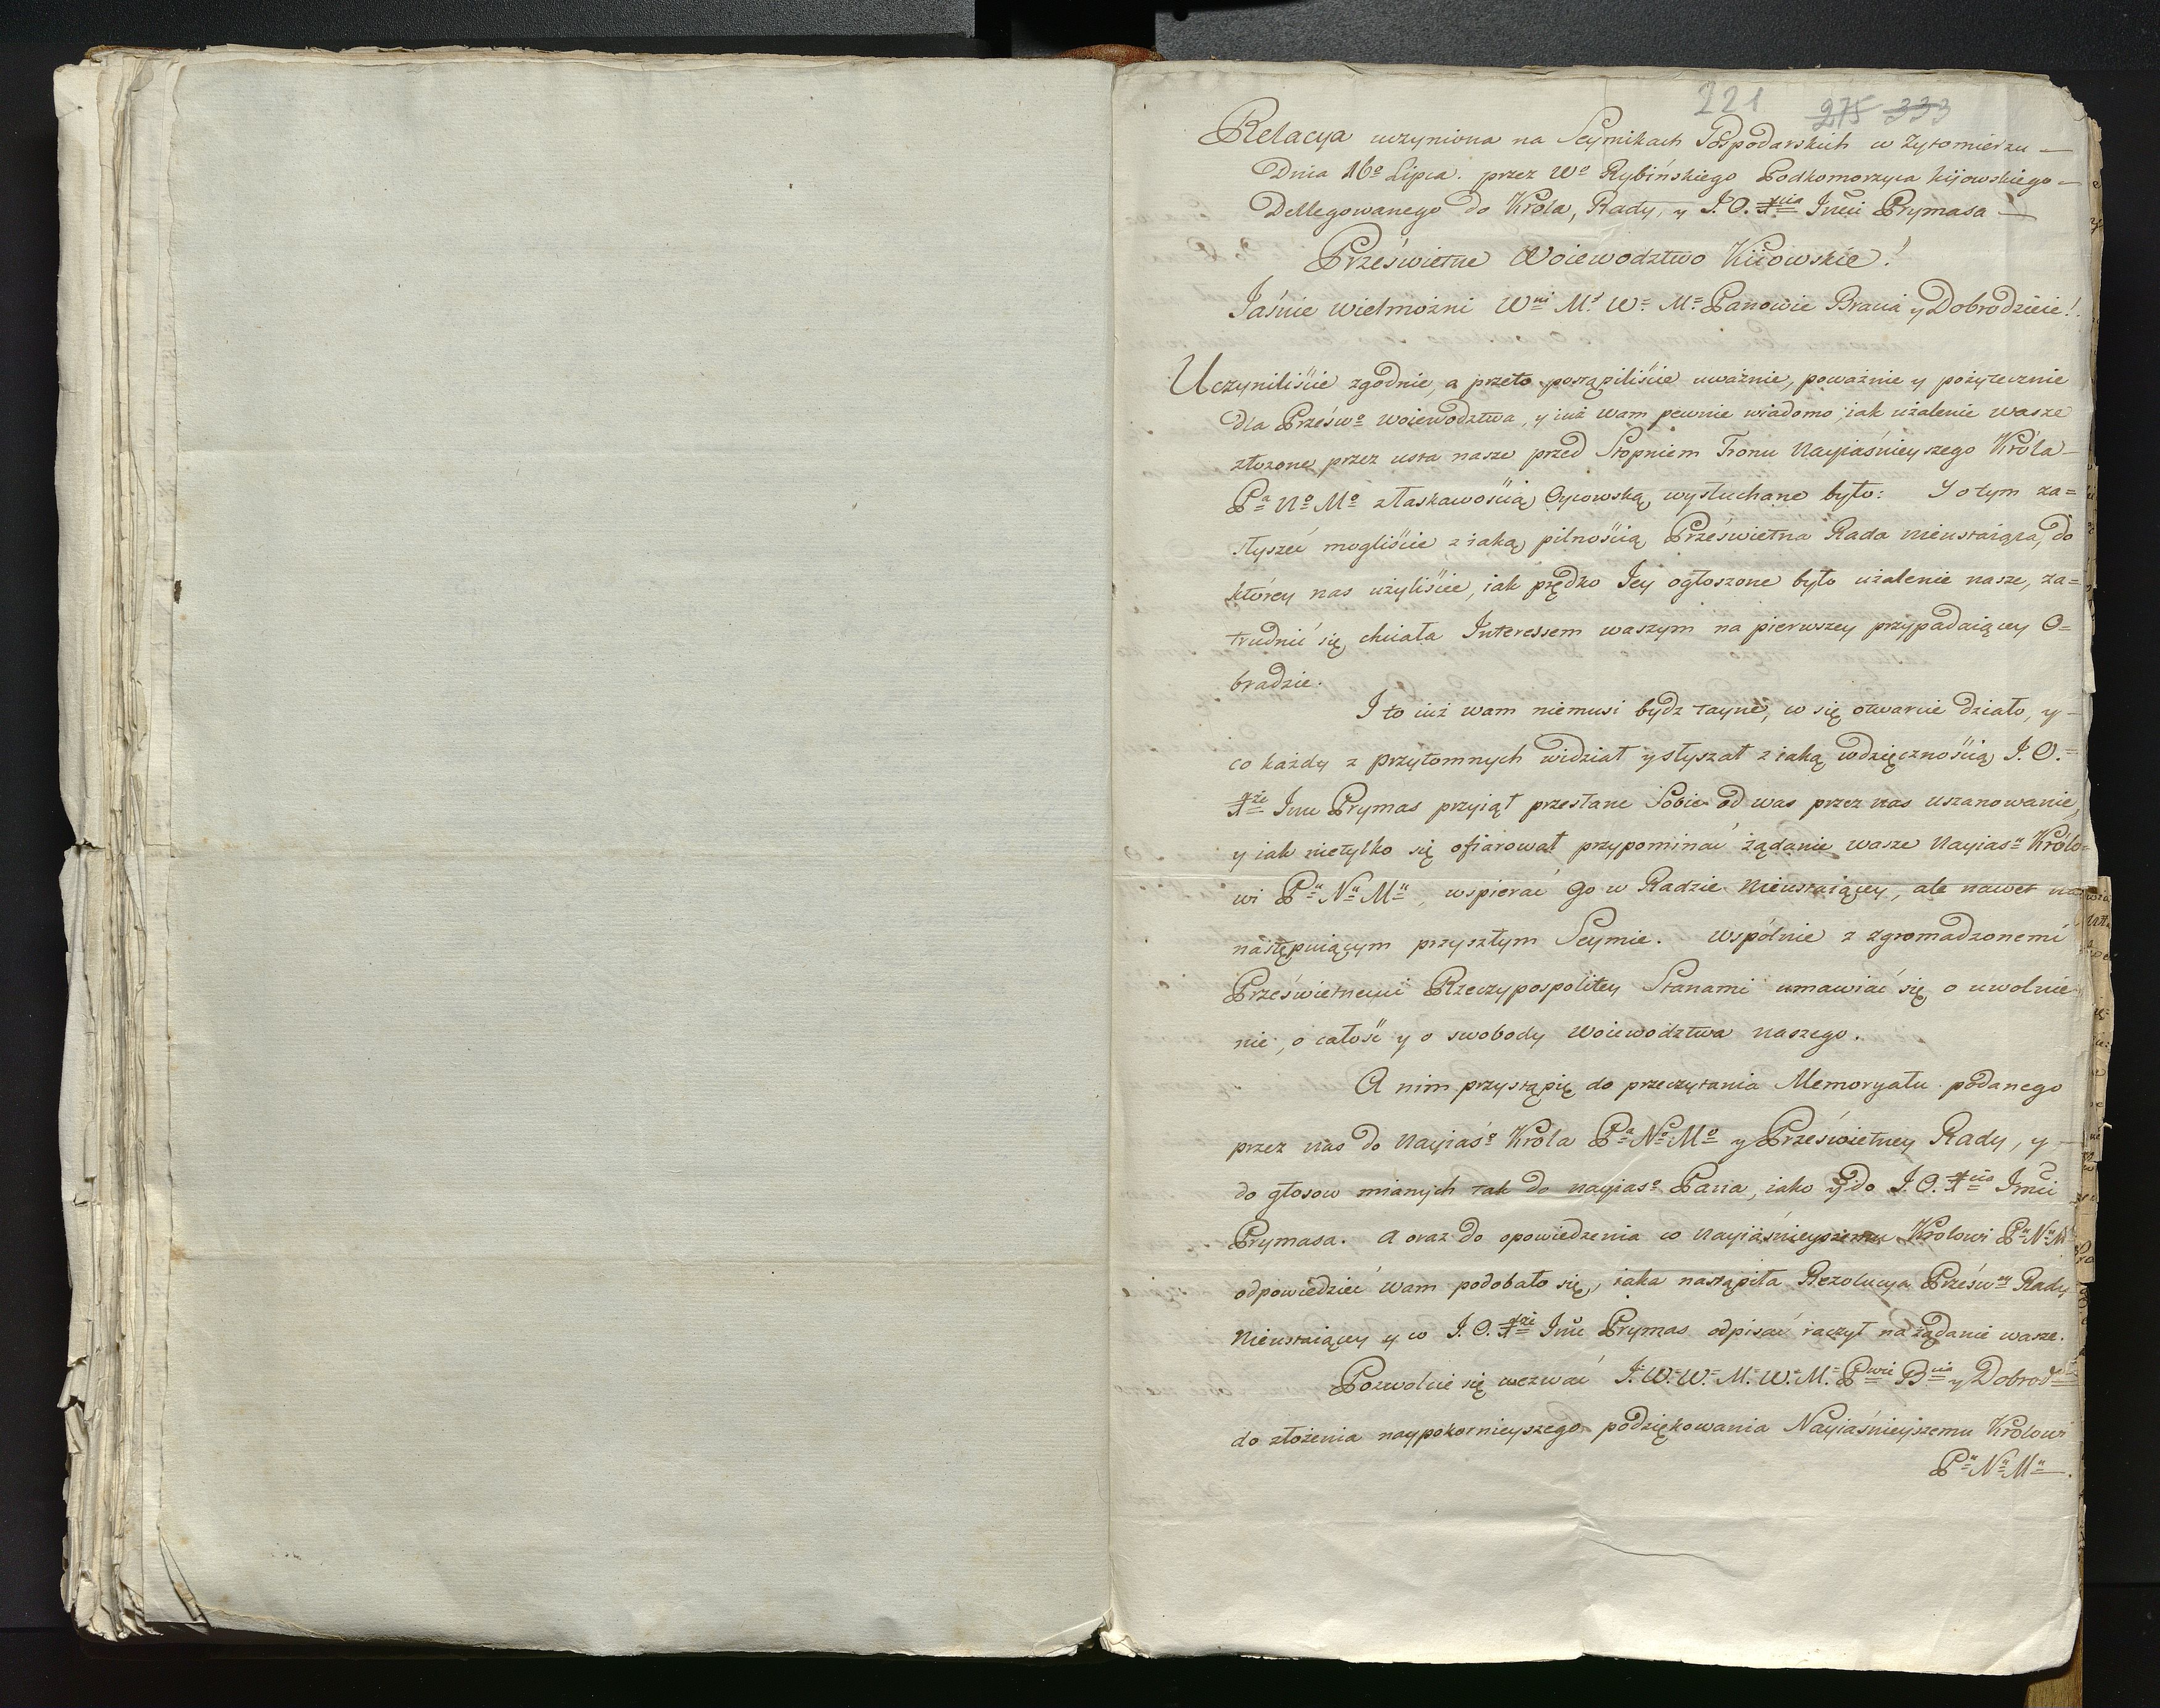 221 275 333
Relacya uczyniona na Seymikach Gospodarskich w Żytomierzu —
Dnia 16º Lipca. przez Wº Rybińskiego Podkomorzyca kijowskiego —
Dellegowanego do Króla, Rady, y J. O. Xcia Jmci Prymasa —
Prześwietne Woiewodztwo Kiiowskie!
Jaśnie wielmożni Wni M. W. M. Panowie Bracia y Dobrodzieie!
Uczyniliście zgodnie, a przeto postąpiliście uważnie, poważnie y pożytecznie
dla Prześwº woiewodztwa, y iuż wam pewnie wiadomo, iak użalenie wasze
złożone przez usta nasze przed Stopniem Tronu Nayiaśnieyszego Króla —
Pa Nº Mº z łaskawością Oycowską wysłuchane było: Y o tym za=
słyszeć mogliście z iaką pilnością Prześwietna Rada nieustaiąca, do
którey nas użyliście, iak prędko Jey ogłoszone było użalenie nasze, za=
trudnić się chciała Interessem waszym na pierwszey przypadaiącey O=
bradzie.
I to iuż wam niemusi bydz tayne, co się otwarcie działo, y —
co każdy z przytomnych widział y słyszał z iaką wdzięcznością J. O. =
Xże Jmc Prymas przyiął przesłane Sobie od was przez nas uszanowanie,
y iak nietylko się ofiarował przypominać żądanie wasze Nayiasu Królo=
wi Pu Nu Mu, wspierać go w Radzie Nieustaiącey, ale nawet na
następuiącym przyszłym Seymie. wspólnie z zgromadzonemi
Prześwietnemi Rzeczypospolitey Stanami umawiać się o uwolnie
nie, o całość y o swobody Woiewodztwa naszego.
A nim przystąpię do przeczytania Memoryału podanego
przez nas do Nayiaśº Króla Pa Nº Mº y Prześwietney Rady, y —
do głosow mianych tak do nayiasº Pana, iako y do J. O. Xcia Jmci
Prymasa. A oraz do opowiedzenia co Nayiaśnieyszemu Krolowi Pu Nu M
odpowiedzieć wam podobało się, iaka nastąpiła Rezolucya Prześwney Rady
Nieustaiącey y co J. O. Xże Jmc Prymas odpisać raczył na żądanie wasze.
Pozwolcie się wezwać J. W. W. M. W. M. Pwie Bcia y Dobrod
do złożenia naypokornieyszego podziękowania Nayiaśnieyszemu Krolowi
Pu Nu Mu.